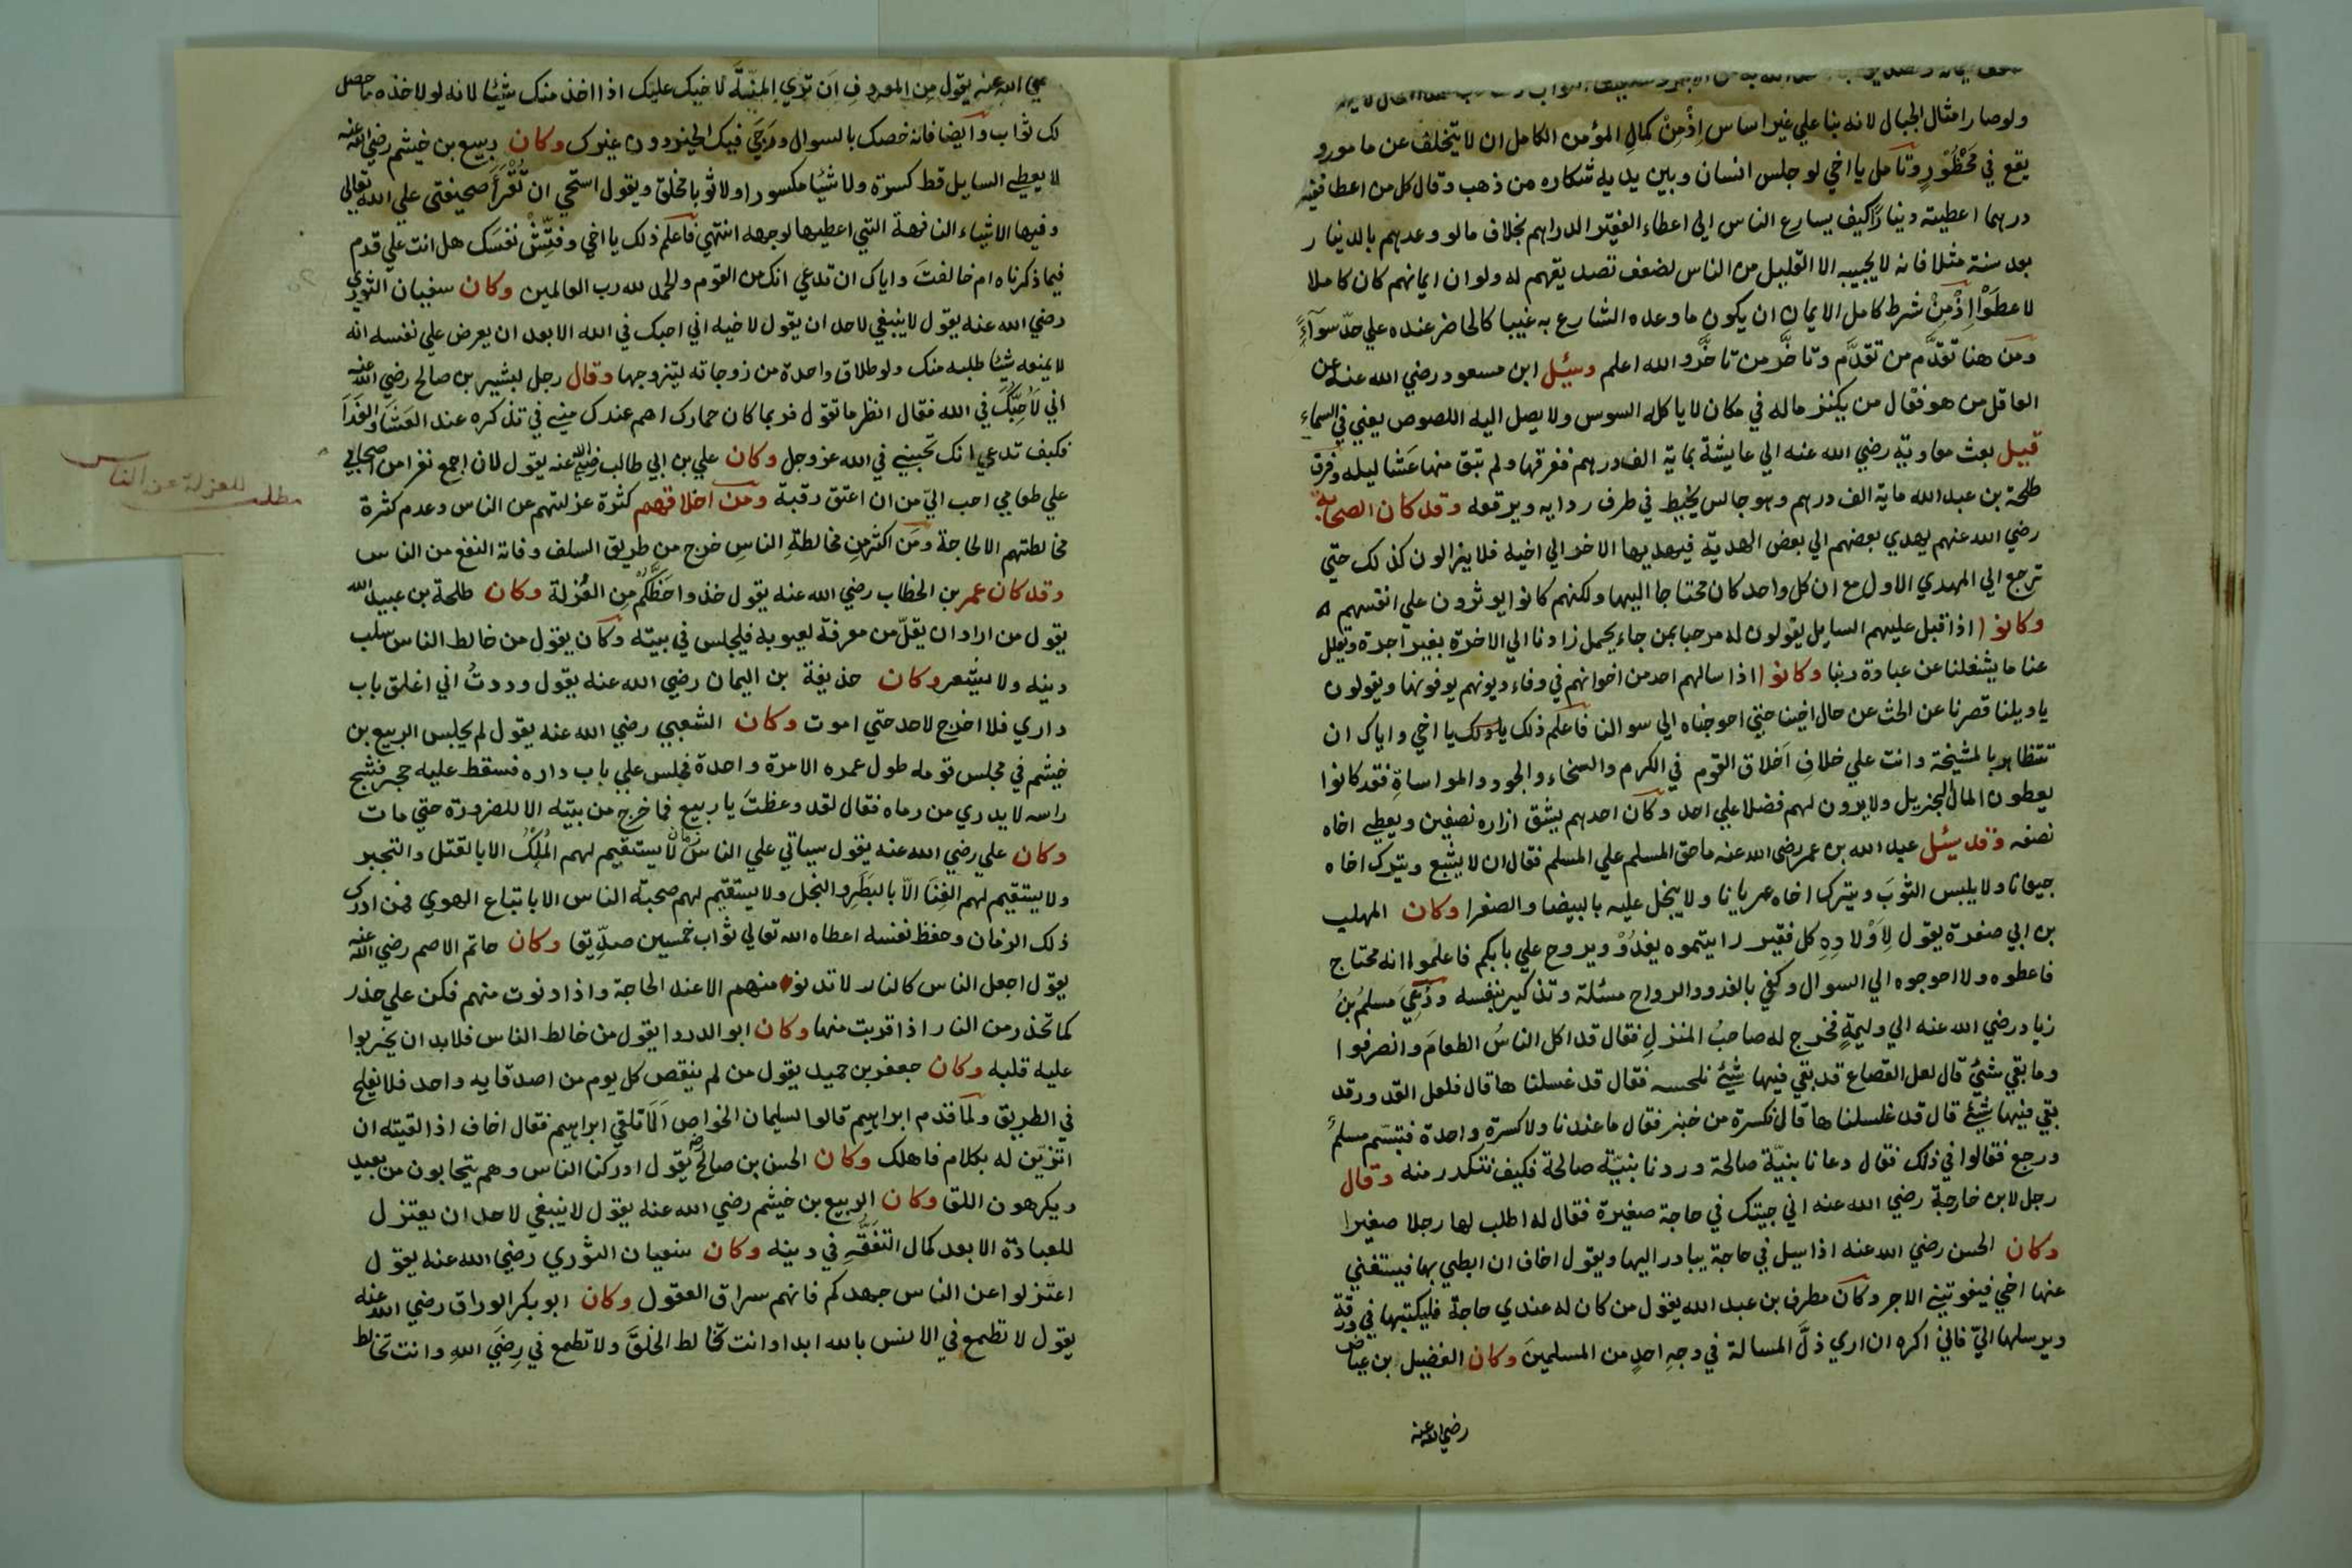 ولوصار امثال الجبال لانه بنا علي غير اساس اِذْ مِنْ كمالِ المؤمن الكامل ان لا يتخلف عن مامور و
يقع في مَحْظُوْرٍ وتامل يا اخي لو جلس انسان وبين يديه شكاره من ذهب وقال كل من اعطا فقير
درهما اعطيته دينارًا كيف يسارع الناس الي اعطاء الفقير الدراهم بخلاف ما لو وعدهم بالدينار
بعد سنة مثلا فانه لا يجيبه الا القليل من الناس لضعف تصديقهم له ولو ان ايمانهم كان كاملا
لاعطَوْا اِذْ مِنْ شرط كامل الايمان ان يكون ما وعده الشارع به غيبا كالحاضر عنده علي حدّ سوآءٍ
ومن هنا تقدَّم من تقدَّم وتاخَّر من تاخَّر والله اعلم وسئِل ابن مسعود رضي الله عنه عن
العاقل من هو فقال من يكنز ماله في مكان لا ياكله السوس ولا يصل اليه اللصوص يعني في السماء
قيل بعث معاوية رضي الله عنه الي عايشة بماية الف درهم ففرقها ولم تبق منها عَشا ليله وفرق
طلحة بن عبد الله ماية الف درهم وهو جالس يخيط في طرف ردايه ويرقعه وقد كان الصحابة
رضي الله عنهم يهدي بعضهم الي بعض الهدية فيهديها الاخر الي اخيه فلا يزالون كذلك حتي
ترجع الي المهدي الاول مع ان كل واحد كان محتاجا اليها ولكنهم كانوا يوثرون علي انفسهم
وكانوا اذا قبل عليهم السايل يقولون له مرحبا بمن جاء يحمل زادنا الي الاخرة بغير اجرة ويقلل
عنا ما يشغلنا عن عبادة ربنا وكانوا اذا سالهم احد من اخوانهم في وفاء ديونهم يوفونها ويقولون
يا ويلنا قصرنا عن الحث عن حال اخينا حتي احوجناه الي سوالنا فاعلم ذلك يا اخي واياك ان
تتظاهر بالمشيخة وانت علي خلافِ اَخلاق القوم في الكرم والسخاء والجود والمواساةِ فقد كانوا
يعطون المال الجزيل ولا يرون لهم فضلا علي احد وكان احدهم يشق ازاره نصفين ويعطي اخاه
نصفه وقد سئل عبد الله بن عمر رضي الله عنه ما حق المسلم علي المسلم فقال ان لا يشبع ويترك اخاه
جيعانا ولا يلبس الثوبَ ويترك اخاه عريانا ولا يبخل عليه بالبيضا والصفرا وكان المهلب
بن ابي صفرة يقول لِاَوْلادِهِ كل فقير رايتموه يغدُوْ ويروح علي بابكم فاعلموا انه محتاج
فاعطوه ولا احوجوه الي السوال وكفي بالغدو والرواح مسئلة وتذكير بنفسه ودُعِيَ مسلمُ بنُ
زياد رضي الله عنه الي وليمةٍ فخرج له صاحبُ المنزلِ فقال قد اكل الناسُ الطعامَ وانصرفوا
وما بقي شئٌ قال لعل القصاع قد بقي فيها شئٌ نلحسه فقال قد غسلناها قال فلعل القدور قد
بقي فيها شئٌ قال قد غلسلناها قال فكسرة من خبز فقال ما عندنا ولا كسرةٍ واحدة فتبسّم مسلمٌ
ورجع فقالوا في ذلك فقال دعانا بنيّة صالحة وردنا بنيّة صالحة فكيف نتكدر منه وقال
رجل لابن خارجة رضي الله عنه اني جيتك في حاجة صغيرة فقال له اطلب لها رجلا صغيرا
وكان الحسن رضي الله عنه اذا سيل في حاجة يبادر اليها ويقول اخاف ان ابطي بها فيستغني
عنها اخي فيفوتيني الاجر وكان مطرف بن عبد الله يقول من كان له عندي حاجة فليكتبها في ورقة
ويرسلها اليّ فاني اكره ان اري ذلَّ المسالة في وجهِ احدٍ من المسلمين وكان الفضيل بن عياض
رضي الله عنه
الله عنه يقول مِن المعروفِ اَن تري المِنّةَ لاخيك عليك اذا اخذ منك شيئا لانه لولا اخذه ما حصل
لك ثواب وايضا فانه خصك بالسوال ورَجَي فيك الخير دون غيرك وكان ربيع بن خيثم رضي الله عنه
لا يعطي السايل قط كسرة ولا شيًا مكسورا ولا ثوبا مخلق ويقول استحي ان تُقْرَأَ صحيفتي علي الله تعالي
وفيها الاشياء التافهة التي اعطيها لوجهه انتهي فاعلم ذلك يا اخي وفتِّشْ نفسَك هل انت علي قدم
فيما ذكرناه ام خالفتَ واياك ان تدعي انك من القوم والحمد لله رب العالمين وكان سفيان الثوري
رضي الله عنه يقول لا ينبغي لاحد ان يقول لاخيه اني احبك في الله الا بعد ان يعرض علي نفسه انه
لا يمنعه شيًا طلبه منك ولو طلاق واحدة من زوجاته ليتزوجها وقال رجل لبشير بن صالح رضي الله عنه
اني لَاُحِبُّكَ في الله فقال انظر ما تقول فربما كان حمارك اهم عندك مني في تذكره عند العَشَا والغَدَا
فكيف تدعي انك تحبني في الله عز وجل وكان علي بن ابي طالب رضي الله عنه يقول لان اجمع نفرا من اصحابي
علي طعامي احب اليّ من ان اعتق رقبة ومن اخلاقهم كثرة عزلتهم عن الناس وعدم كثرة
مخالطتهم الا لحاجة ومَن اكثر من مخالطةِ الناسِ خرج من طريق السلف وفاته النفع من الناس
مطلب للعزلة عن الناس
وقد كان عمر بن الخطاب رضي الله عنه يقول خذوا حَظَّكُمْ مِن العُزلة وكان طلحة بن عبيد الله
يقول من اراد ان يقلّ من معرفة لعيوبه فليجلس في بيته وكان يقول من خالط الناس سلب
دينه ولا يشعر وكان حذيفة ابن اليمان رضي الله عنه يقول وددتُ اني اغلق باب
داري فلا اخرج لاحد حتي اموت وكان الشعبي رضي الله عنه يقول لم يجلس الربيع بن
خيثم في مجلس قومه طول عمره الا مرة واحدة فجلس علي باب داره فسقط عليه حجر فشج
راسه لا يدري من رماه فقال لقد وعظتَ يا ربيع فما خرج من بيته الا للضرورة حتي مات
وكان علي رضي الله عنه يقول سياتي علي الناس زمان لا يستقيم لهم المُلكُ الا بالقتل والتجبر
ولا يستقيم لهم الغِنَا الّا بالبَطَرِ والبخل ولا يستقيم لهم صحبة الناس الا باتباع الهوي فمن ادرك
ذلك الزمان وحفظ نفسه اعطاه الله تعالي ثواب خمسين صدِّيقا وكان حاتم الاصم رضي الله عنه
يقول اجعل الناس كالنار لا تدنو منهم الا عند الحاجة واذا دنوت منهم فكن علي حذر
كما تحذر من النار اذا قربت منها وكان ابو الدردا يقول من خالط الناس فلا بد ان يخربوا
عليه قلبه وكان جعفر بن حميد يقول من لم ينقص كل يوم من اصدقايه واحد فلا يفلح
في الطريق ولما قدم ابراهيم قالوا لسليمان الخواص اَلَا تلقي ابراهيم فقال اخاف اذا لقيته ان
اتزيّن له بكلام فاهلك وكان الحسن بن صالح يقول ادركنا الناس وهم يتحابون من بعيد
ويكرهون اللقا وكان الربيع بن خيثم رضي الله عنه يقول لا ينبغي لاحد ان يعتزل
للعبادة الا بعد كمال التفَقُّهِ في دينه وكان سفيان الثوري رضي الله عنه يقول
اعتزلوا عن الناس جهدكم فانهم سراق العقول وكان ابو بكر الوراق رضي الله عنه
يقول لا تطمع في الانس بالله ابدا وانت تخالط الخلقَ ولا تطمع في رِضَي اللهِ وانت تخالط